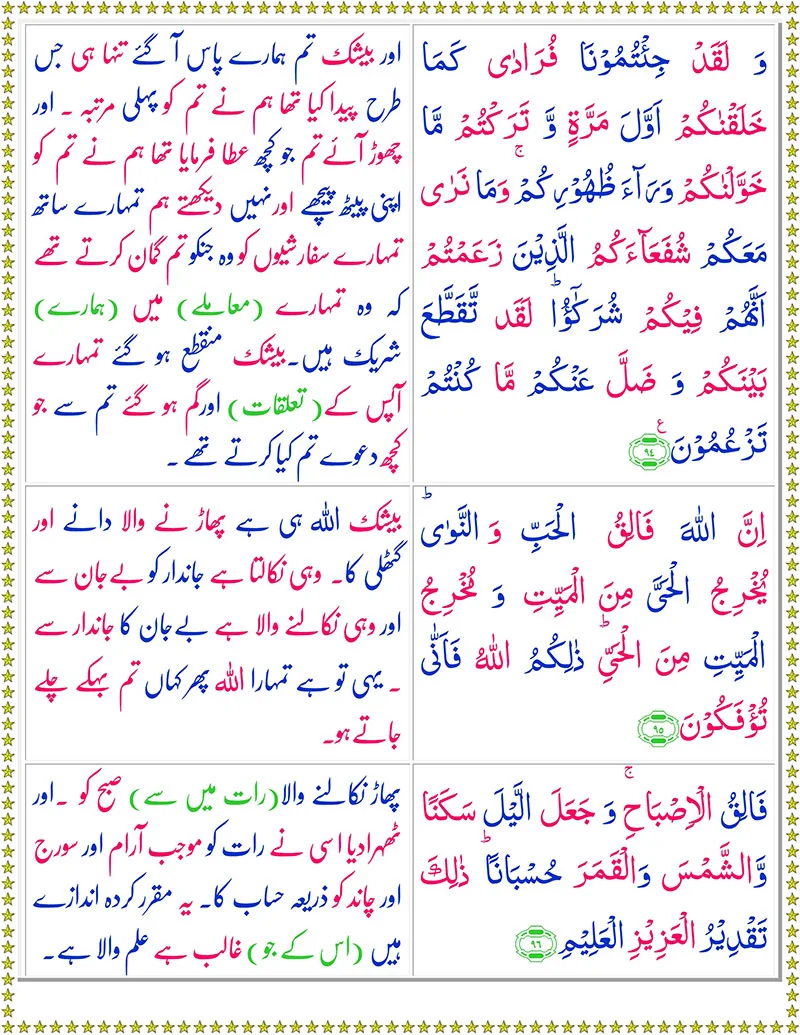 وَ لَقَدْ جِئْتُمُوْنَا فُرَادٰى كَمَا
خَلَقْنٰكُمْ اَوَّلَ مَرَّةٍ وَّ تَرَكْتُمْ مَّا
خَوَّلْنٰكُمْ وَرَآءَ ظُهُوْرِكُمْ ۚ وَمَا نَرٰى
مَعَكُمْ شُفَعَآءَكُمُ الَّذِيْنَ زَعَمْتُمْ
اَنَّهُمْ فِيْكُمْ شُرَكٰٓؤُا ؕ لَقَد تَّقَطَّعَ
بَيْنَكُمْ وَ ضَلَّ عَنْكُمْ مَّا كُنْتُمْ
تَزْعُمُوْنَ ۧ ﴿۹۴﴾
اور بیشک تم ہمارے پاس آ گئے تنہا ہی جس
طرح پیدا کیا تھا ہم نے تم کو پہلی مرتبہ ۔ اور
چھوڑ آئے تم جو کچھ عطا فرمایا تھا ہم نے تم کو
اپنی پیٹھ پیچھے اور نہیں دیکھتے ہم تمہارے ساتھ
تمہارے سفارشیوں کو وہ جنکو تم گمان کرتے تھے
کہ وہ تمہارے (معاملے) میں (ہمارے)
شریک ہیں۔ بیشک منقطع ہو گئے تمہارے
آپس کے (تعلقات) اور گم ہو گئے تم سے جو
کچھ دعوے تم کیا کرتے تھے ۔
اِنَّ اللّٰهَ فَالِقُ الْحَبِّ وَ النَّوٰى ؕ
يُخْرِجُ الْحَىَّ مِنَ الْمَيِّتِ وَ مُخْرِجُ
الْمَيِّتِ مِنَ الْحَىِّ ؕ ذٰلِكُمُ اللّٰهُ فَاَنّٰى
تُؤْفَكُوْنَ ﴿۹۵﴾
بیشک اللہ ہی ہے پھاڑ نے والا دانے اور
گٹھلی کا۔ وہی نکالتا ہے جاندار کو بے جان سے
اور وہی نکالنے والا ہے بے جان کا جاندار سے
۔ یہی تو ہے تمہارا اللہ پھر کہاں تم بہکے چلے
جاتے ہو۔
فَالِقُ الْاِصْبَاحِ ۚ وَ جَعَلَ الَّيْلَ سَكَنًا
وَّالشَّمْسَ وَالْقَمَرَ حُسْبَانًا ؕ ذٰلِكَ
تَقْدِيْرُ الْعَزِيْزِ الْعَلِيْمِ ﴿۹۶﴾
پھاڑ نکالنے والا (رات میں سے) صبح کو ۔ اور
ٹھہرا دیا اسی نے رات کو موجب آرام اور سورج
اور چاند کو ذریعہ حساب کا۔ یہ مقرر کردہ اندازے
ہیں (اس کے جو) غالب ہے علم والا ہے۔